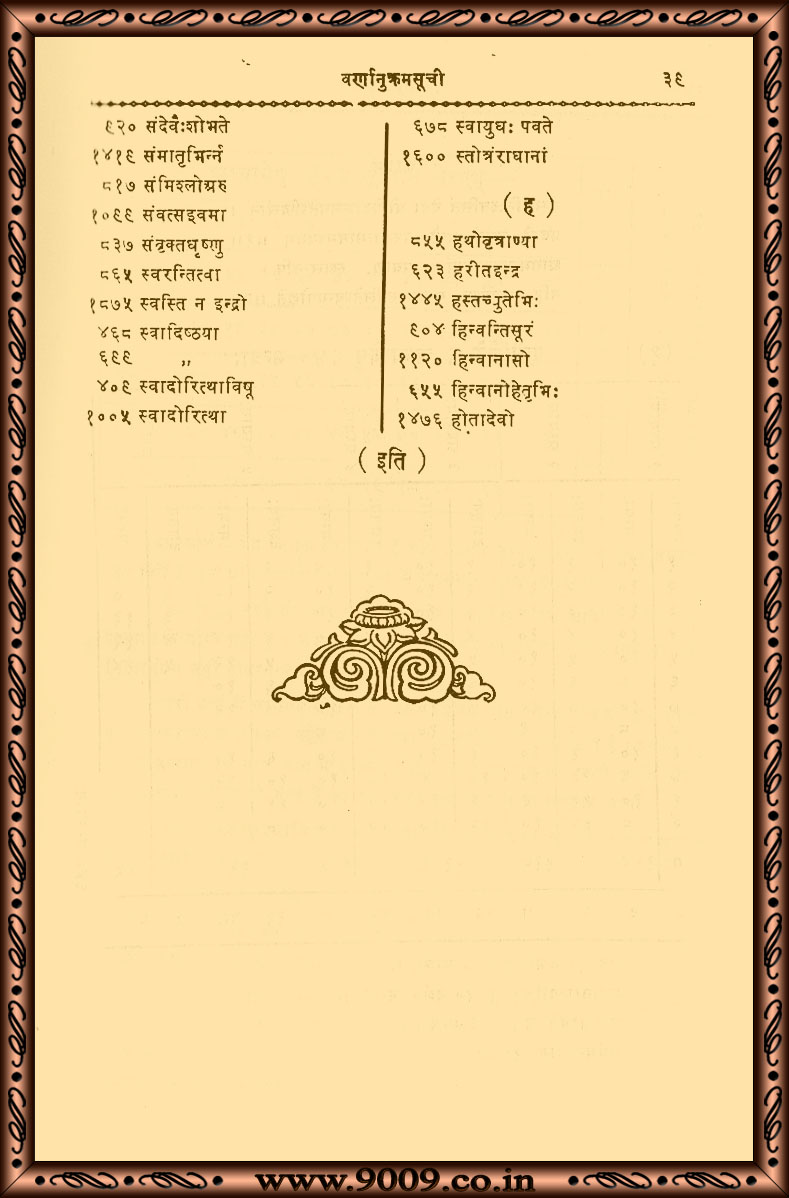 वर्णानुक्रमसूची ३९
९२० संदेवैःशोभते
१४१९ संमातृभिर्न्न
८१७ संमिश्लोअरु
१०९९ संवत्सइवमा
८३७ संवृक्तधृष्णु
८६५ स्वरन्तित्वा
१८७५ स्वस्ति न इन्द्रो
४६८ स्वादिष्ठया
६९९ ,,
४०९ स्वादोरित्थाविषू
१००५ स्वादोरित्था
६७८ स्वायुधः पवते
१६०० स्तोत्रंराधानां
( ह )
८५५ हथोवृत्राण्या
६२३ हरीतइन्द्र
१४४५ हस्तच्युतेभिः
९०४ हिन्वन्तिसूरं
११२० हिन्वानासो
६५५ हिन्वानोहेतृभिः
१४७६ होतादेवो
( इति )
www.9009.co.in